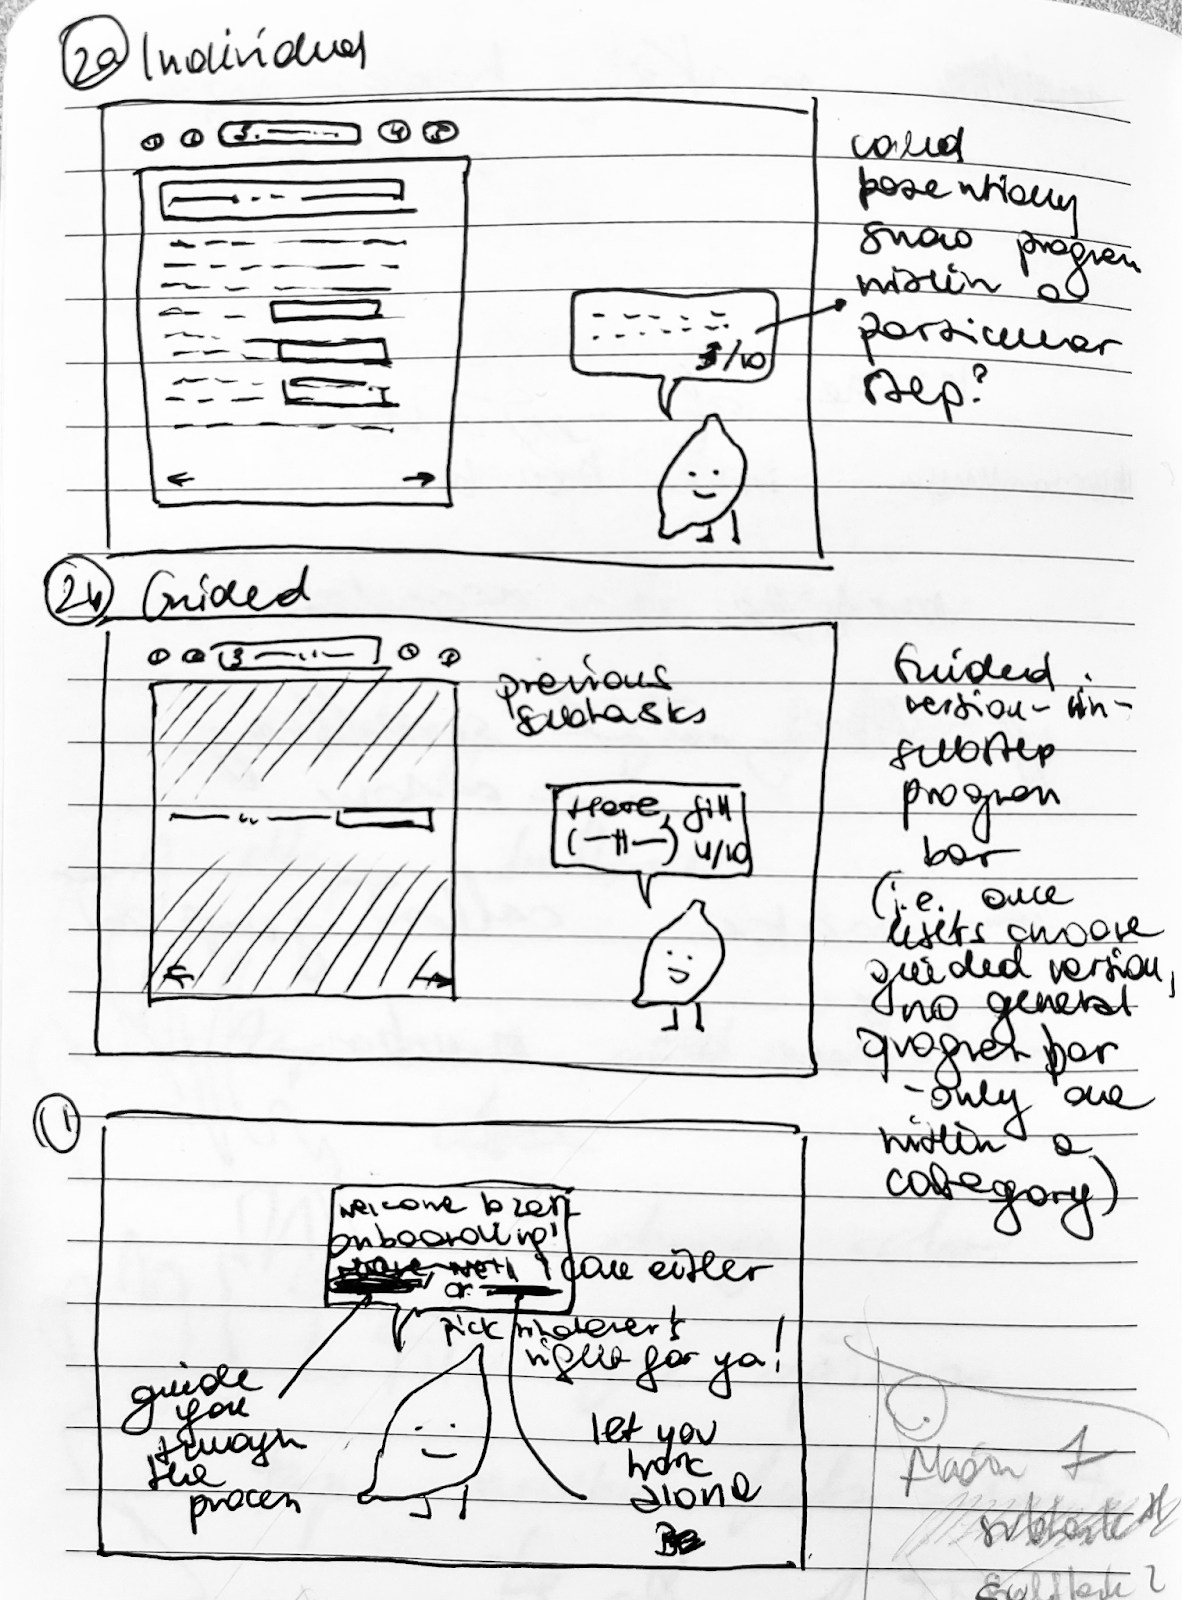 2a Individual
1 2 3. 4 5
could
potentially
show progress
within a
particular
step?
3/10
2b Guided
1 2 3
previous
subtasks
Here, fill
4/10
Guided
version - in-
substep
progress
bar
(i.e. once
users choose
guided version,
no general
progress bar
- only one
within a
category)
1
Welcome to
onboarding!
I can either
or
pick whatever's
right for ya!
guide
you
through
the
process
let you
work
alone
Main 1
subtask
subtask 2